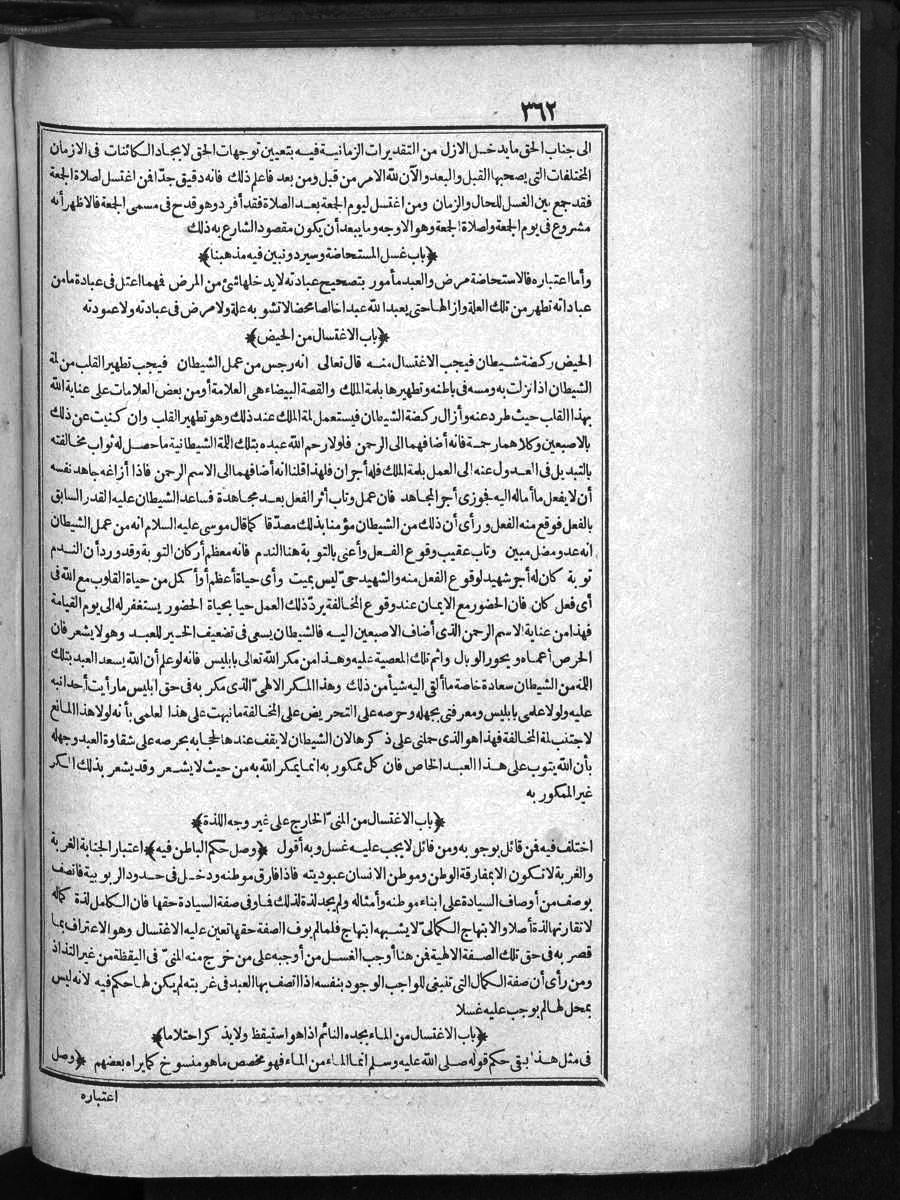 ٣٦٢
الى جناب الحق ما يدخل الازل من التقديرات الزمانية فيه بتعيين توجهات الحق لايجاد الكائنات فى الازمان
المختلفات التى يصحبها القبل والبعد والآن لله الامر من قبل ومن بعد فاعلم ذلك فانه دقيق جدّا فن اغتسل لصلاة الجعة
فقد جمع بين الغسل للحال والزمان ومن اغتسل ليوم الجعة بعد الصلاة فقد أفرد وهو قدح فى مسمى الجعة فالاظهر أنه
مشروع فى يوم الجعة ولصلاة الجعة وهو الاوجه وما يبعد أن يكون مقصود الشارع به ذلك
﴿باب غسل المستحاضة وسيرد ونبين فيه مذهبنا﴾
وأما اعتباره فالاستحاضة مرض والعبد مأمور بتصحيح عبادته لايدخلها شئ من المرض فهما اعتل فى عبادة ما من
عباداته تطهر من تلك العلة وازالها حتى يعبد الله عبدا خالصا محضا لاتشوبه علة ولا مرض فى عبادته ولا عبودته
﴿باب الاغتسال من الحيض﴾
الحيض ركضة شيطان فيجب الاغتسال منه قال تعالى انه رجس من عمل الشيطان فيجب تطهير القلب من لمة
الشيطان اذا نزلت به ومسه فى باطنه وتطهيرها بلمة الملك والقصة البيضاء هى العلامة أو من بعض العلامات على عناية الله
بهذا القلب حيث طرد عنه وأزال ركضة الشيطان فيستعمل لمة الملك عند ذلك وهو تطهير القلب وان كنيت عن ذلك
بالاصبعين وكلاهما رحمة فانه أضافهما الى الرحمن فلولا رحم الله عبده بتلك اللمة الشيطانية ما حصل له ثواب مخالفته
بالتبديل فى العدول عنه الى العمل بلمة الملك فله أجران فلهذا قلنا انه أضافهما الى الاسم الرحمن فاذا أزاغه جاهد نفسه
أن لايفعل ما أماله اليه فجوزى أجر المجاهد فان عمل وتاب أثر الفعل بعد مجاهدة فساعد الشيطان عليه القدر السابق
بالفعل فوقع منه الفعل ورأى أن ذلك من الشيطان مؤمنا بذلك مصدّقا كما قال موسى عليه السلام انه من عمل الشيطان
انه عدو مضل مبين وتاب عقيب وقوع الفعل وأعنى بالتوبة هنا الندم فانه معظم أركان التوبة وقد ورد أن الندم
توبة كان له أجر شهيد لوقوع الفعل منه والشهيد حىّ ليس بميت وأى حياة أعظم أوأكمل من حياة القلوب مع الله فى
أى فعل كان فان الحضور مع الايمان عند وقوع المخالفة يردّ ذلك العمل حيا بحياة الحضور يستغفر له الى يوم القيامة
فهذا من عناية الاسم الرحمن الذى أضاف الاصبعين اليه فالشيطان يسعى فى تضعيف الخير للعبد وهو لايشعر فان
الحرص أعماه ويحور الوبال واثم تلك المعصية عليه وهذا من مكر الله تعالى بابليس فانه لو علم أن الله يسعد العبد بتلك
اللمة من الشيطان سعادة خاصة ما ألقى اليه شيأ من ذلك وهذا المكر الالهىّ الذى مكر به فى حق ابليس ما رأيت أحدا نبه
عليه ولولا علمى بابليس ومعرفتى بجهله وحرصه على التحريض على المخالفة ما نبهت على هذا لعلمى بأنه لولا هذا المانع
لاجتنب لمة المخالفة فهذا هو الذى حملنى على ذكرها لان الشيطان لايقف عندها لحجابه بحرصه على شقاوة العبد وجهله
بأن الله يتوب على هذا العبد الخاص فان كل ممكور به انما يمكر الله به من حيث لايشعر وقد يشعر بذلك المكر
غير الممكور به
﴿باب الاغتسال من المنىّ الخارج على غير وجه اللذة﴾
اختلف فيه فن قائل بوجوبه ومن قائل لايجب عليه غسل وبه أقول ﴿وصل حكم الباطن فيه﴾ اعتبار الجنابة الغربة
والغربة لاتكون الابمفارقة الوطن وموطن الانسان عبوديته فاذا فارق موطنه ودخل فى حدود الربوبية فاتصف
بوصف من أوصاف السيادة على ابناء موطنه وأمثاله ولم يجد لذة لذلك فما وفى صفة السيادة حقها فان الكامل لذة كماله
لاتقارنها لذة أصلا والابتهاج الكمالىّ لايشبهه ابتهاج فلما لم يوف الصفة حقها تعين عليه الاغتسال وهو الاعتراف بما
قصر به فى حق تلك الصفة الالهية فن هنا أوجب الغسل من أوجبه على من خرج منه المنىّ فى اليقظة من غير التذاذ
ومن رأى أن صفة الكمال التى تنبغى للواجب الوجود بنفسه اذا اتصف بها العبد فى غربته لم يكن لها حكم فيه لانه ليس
بمحل لها لم يوجب عليه غسلا
﴿باب الاغتسال من الماء يجده النائم اذا هو استيقظ ولايذكر احتلاما﴾
فى مثل هذا بقى حكم قوله صلى الله عليه وسلم انما الماء من الماء فهو مخصص ما هو منسوخ كما يراه بعضهم ﴿وصل
اعتباره